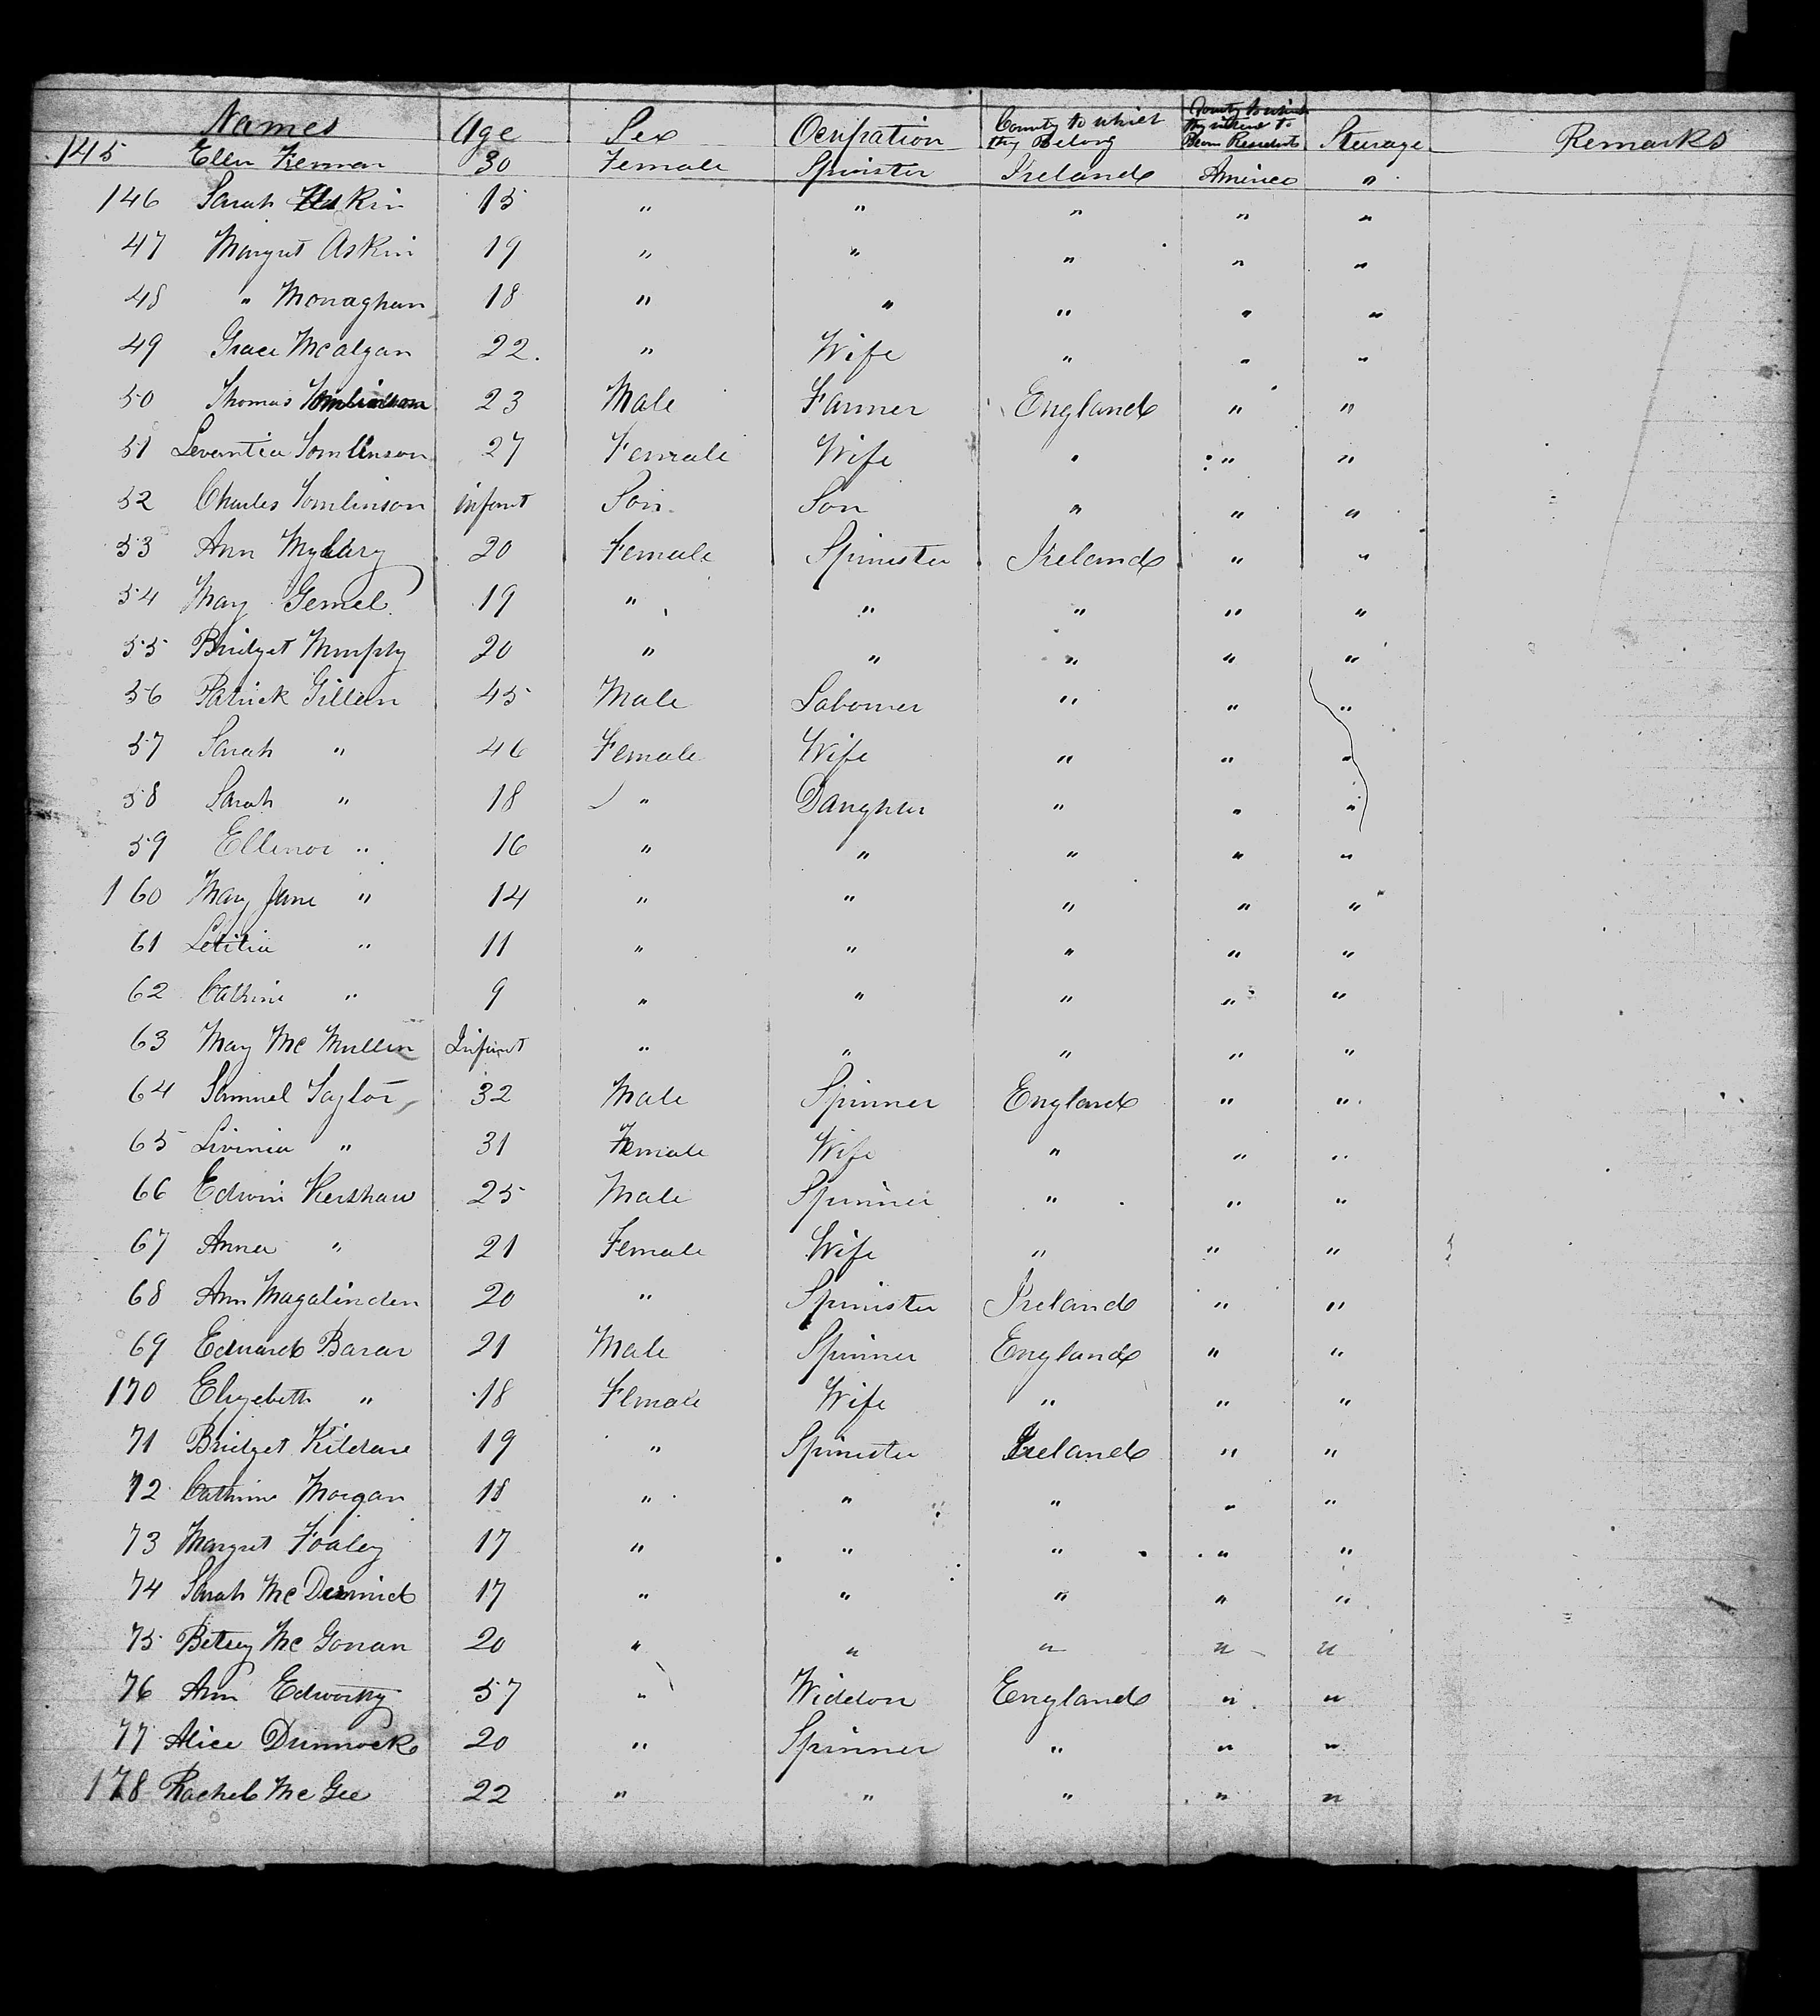 Names Age Sex Ocupation County to which they Belong County to which they intend to Becom Residents Sturage Remarks
145 Ellen 30 Female Spinster Ireland America "
146 Sarah Askin 15 " " " " "
47 Margret Askin 19 " " " " "
48 " Monaghan 18 " " " " "
49 Grace McAlgan 22. " Wife " " "
50 Thomas Tomlinson 23 Male Farmer England " "
51 Leventia Tomlinson 27 Female Wife " " "
52 Charles Tomlinson infant Son Son " " "
53 Ann 20 Female Spinister Ireland " "
54 Mary Gemel 19 " " " " "
55 Bridget Murphy 20 " " " " "
56 Patrick Gillen 45 Male Labourer " " "
57 Sarah " 46 Female Wife " " "
58 Sarah " 18 " Daughter " " "
59 Ellenor " 16 " " " " "
160 Mary Jane " 14 " " " " "
61 Letitia " 11 " " " " "
62 Cathrine " 9 " " " " "
63 Mary Mc Mullen Infant " " " " "
64 Samuel Taylor 32 Male Spinner England " "
65 Livinia " 31 Female Wife " " "
66 Edwin Kershaw 25 Male Spinner " " "
67 Anna " 21 Female Wife " " "
68 Ann Magalinden 20 " Spinister Ireland " "
69 Edward Barar 21 Male Spinner England " "
170 Elizebeth " 18 Female Wife " " "
71 Bridget Kildare 19 " Spinister Ireland " "
72 Cathrine Morgan 18 " " " " "
73 Margret Foaley 17 " " " " "
74 Sarah Mc Dermid 17 " " " " "
75 Betsey Mc Gonan 20 " " " " "
76 Ann Edworthy 57 " Widdow England " "
77 Alice Dunnock 20 " Spinner " " "
178 Rachel Mc Gee 22 " " " " "